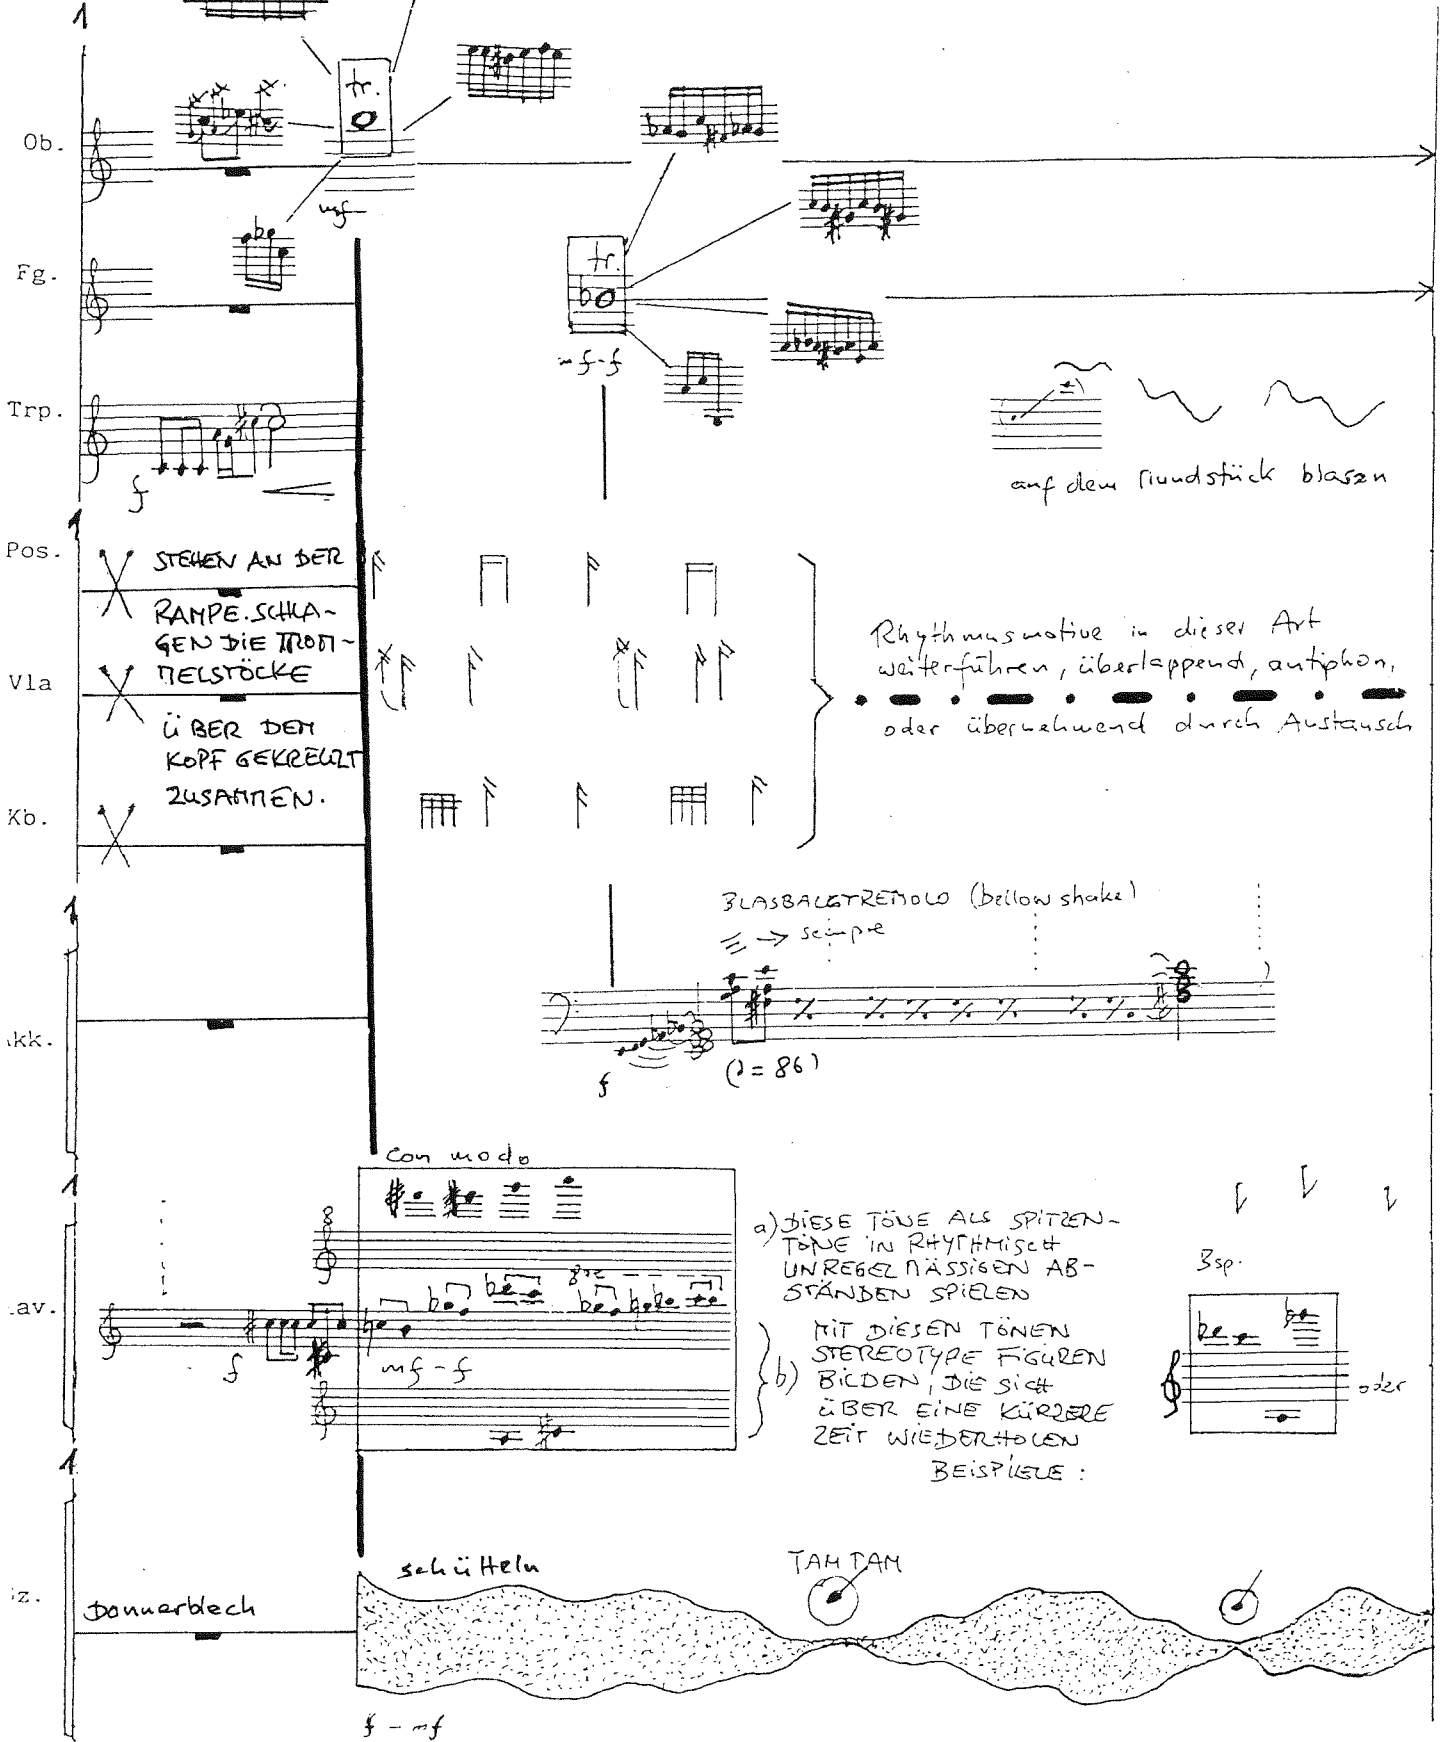 1
tr.
Ob.
mf
Fg.
tr.
mf-f
Trp.
f
auf dem Mundstück blasen
1
Pos.
STEHEN AN DER
RAMPE. SCHLA-
GEN DIE TROM-
MELSTÖCKE
ÜBER DEM
KOPF GEKREUZT
ZUSAMMEN.
Vla
Kb.
Rhythmusmotive in dieser Art
weiterführen, überlappend, antiphon,
oder übernehmend durch Austausch
1
BLASBALGTREMOLO (bellow shake)
sempre
kk.
f
(♩=86)
1
con modo
8
a) DIESE TÖNE ALS SPITZEN-
TÖNE IN RHYTHMISCH
UNREGELMÄSSIGEN AB-
STÄNDEN SPIELEN
Bsp.
8va
.av.
f
mf-f
b)
MIT DIESEN TÖNEN
STEREOTYPE FIGUREN
BILDEN, DIE SICH
ÜBER EINE KÜRZERE
ZEIT WIEDERHOLEN
BEISPIELE:
oder
1
schütteln
TAM TAM
z.
Donnerblech
f - mf